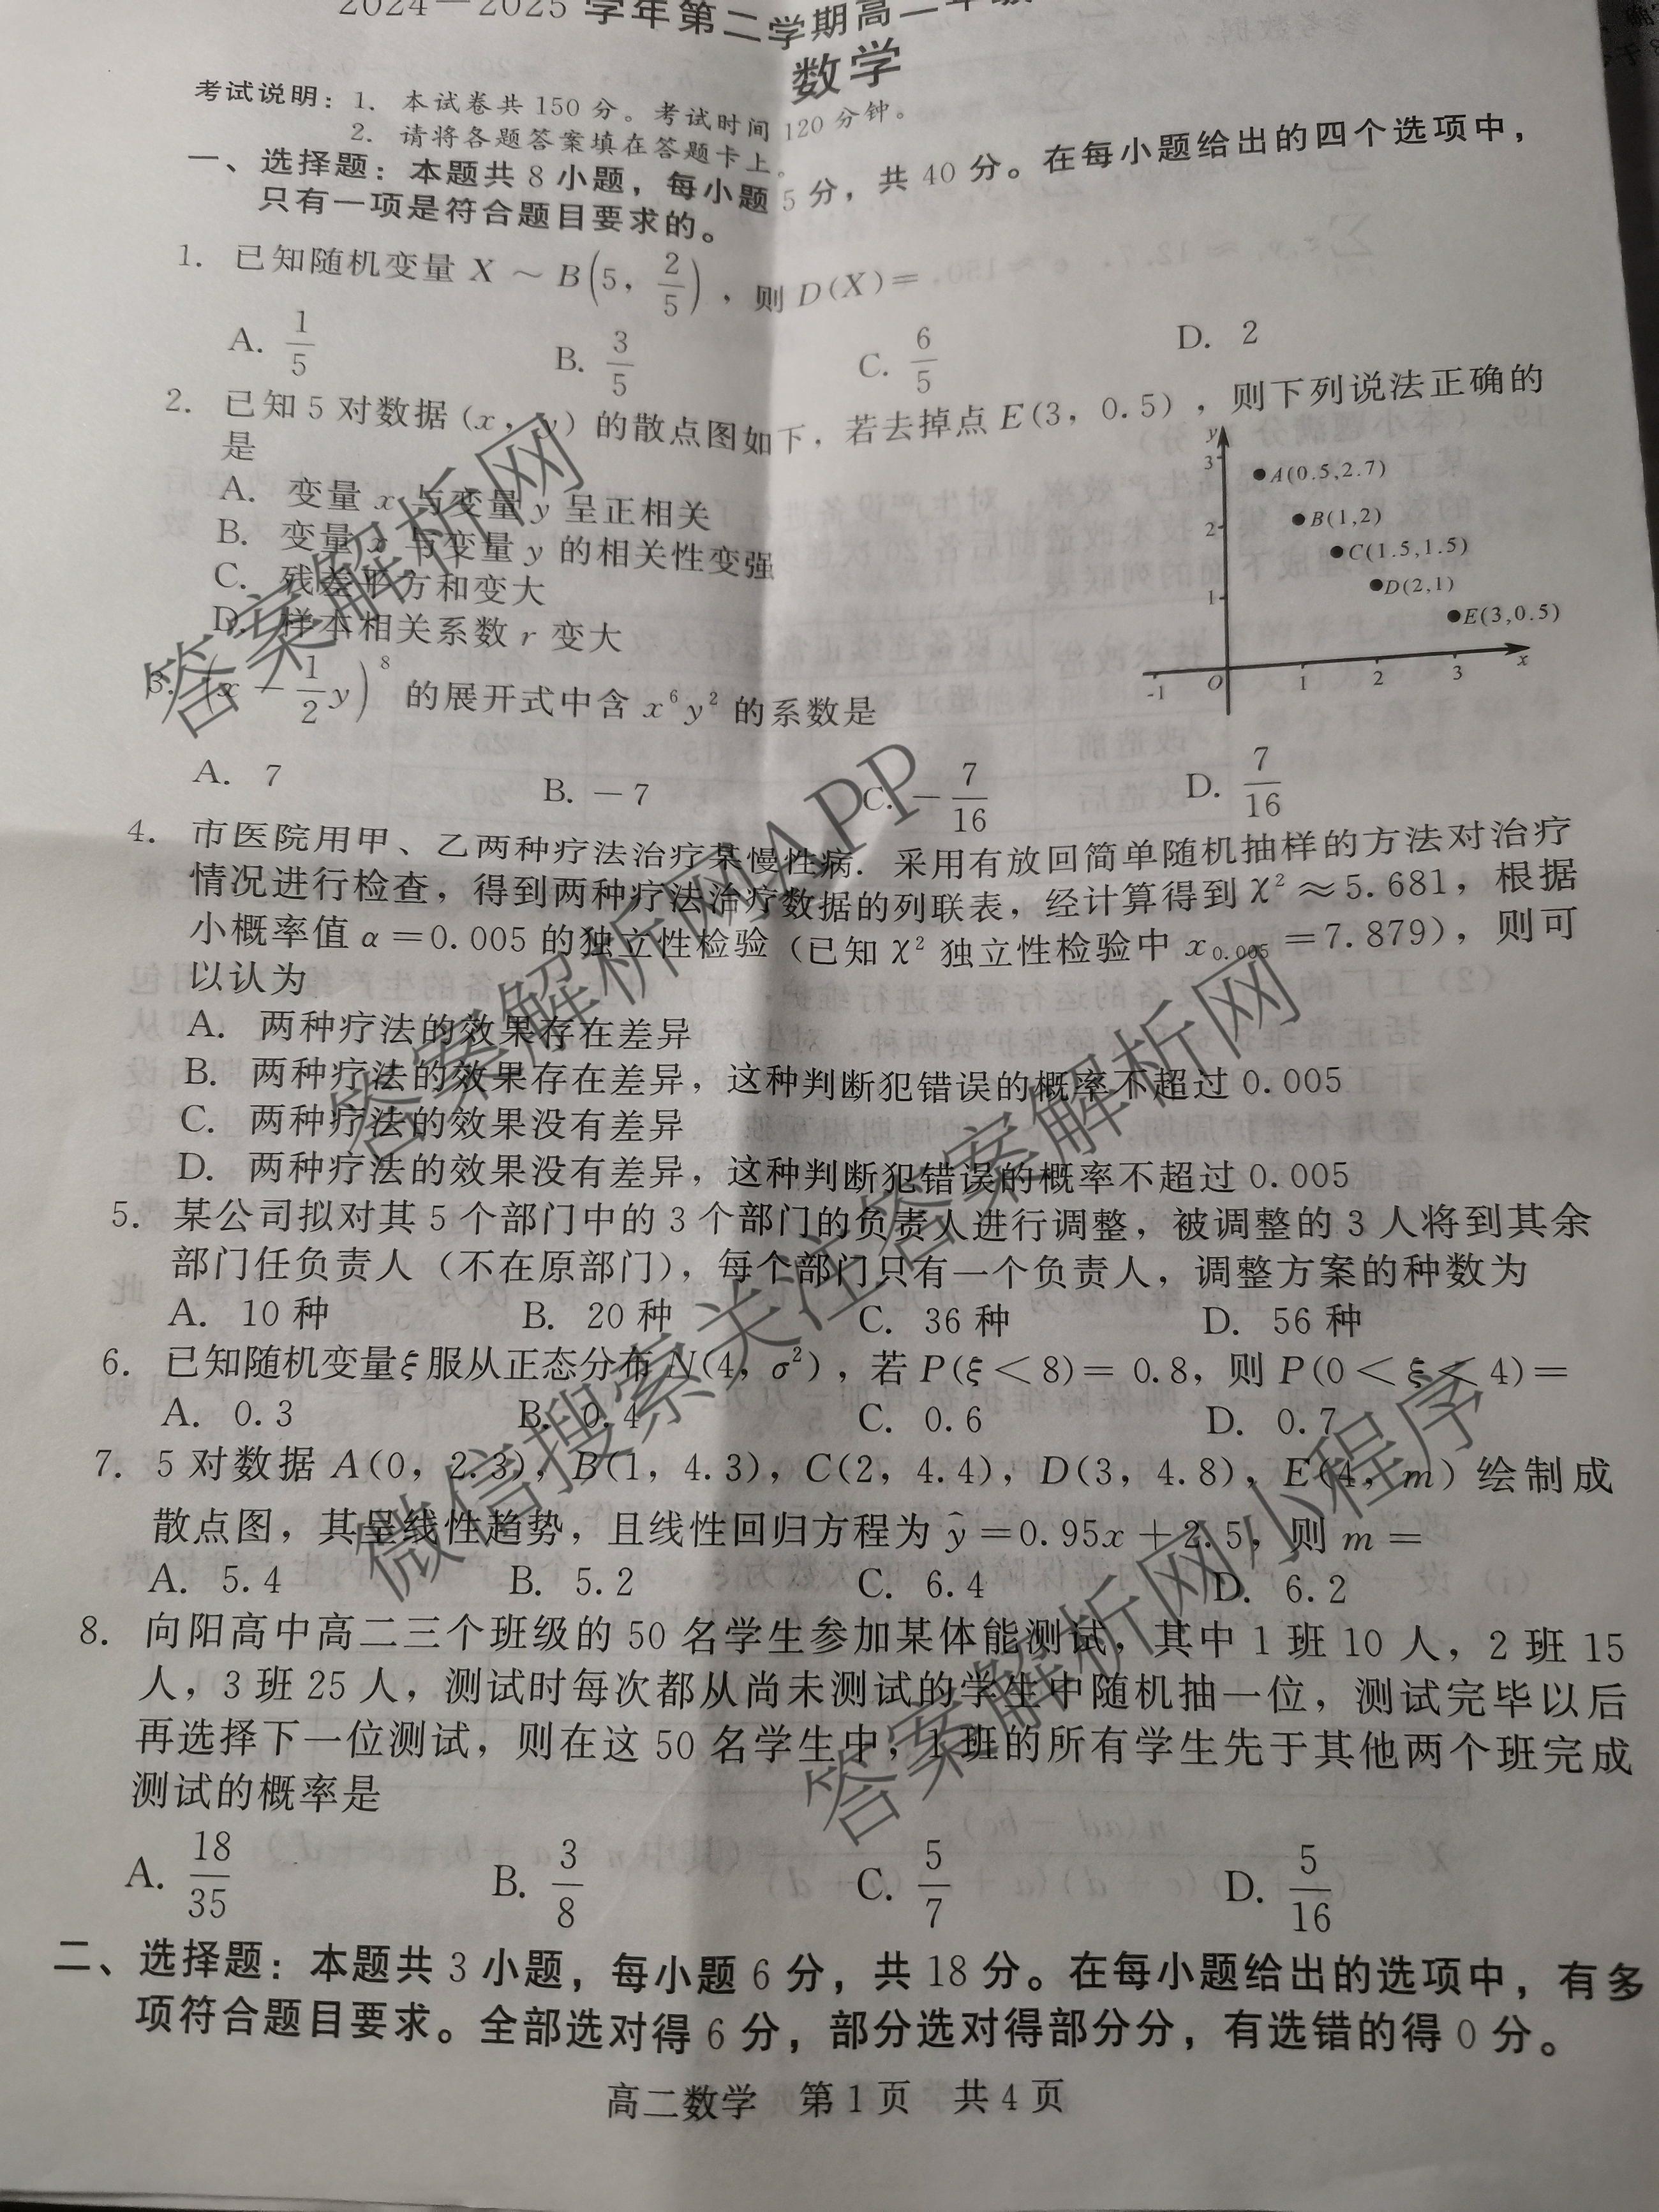 2024—2025 学年第二学期高二年级
数学
考试说明：1. 本试卷共 150 分。考试时间 120 分钟。
2. 请将各题答案填在答题卡上。
一、选择题：本题共 8 小题，每小题 5 分，共 40 分。在每小题给出的四个选项中，
只有一项是符合题目要求的。
1. 已知随机变量 X ～ B(5, 2/5)，则 D(X)=
A. 1/5 B. 3/5 C. 6/5 D. 2
2. 已知 5 对数据 (x, y) 的散点图如下，若去掉点 E(3, 0.5)，则下列说法正确的
是
A. 变量 x 与变量 y 呈正相关
B. 变量 x 与变量 y 的相关性变强
C. 残差平方和变大
D. 样本相关系数 r 变大
y
3
2
1
-1 O 1 2 3 x
A(0.5,2.7)
B(1,2)
C(1.5,1.5)
D(2,1)
E(3,0.5)
3. (x − 1/2 y)⁸ 的展开式中含 x⁶y² 的系数是
A. 7 B. －7 C. －7/16 D. 7/16
4. 市医院用甲、乙两种疗法治疗某慢性病. 采用有放回简单随机抽样的方法对治疗
情况进行检查，得到两种疗法治疗数据的列联表，经计算得到 χ² ≈5.681，根据
小概率值 α＝0.005 的独立性检验（已知 χ² 独立性检验中 x₀.₀₀₅ ＝7.879），则可
以认为
A. 两种疗法的效果存在差异
B. 两种疗法的效果存在差异，这种判断犯错误的概率不超过 0.005
C. 两种疗法的效果没有差异
D. 两种疗法的效果没有差异，这种判断犯错误的概率不超过 0.005
5. 某公司拟对其 5 个部门中的 3 个部门的负责人进行调整，被调整的 3 人将到其余
部门任负责人（不在原部门），每个部门只有一个负责人，调整方案的种数为
A. 10 种 B. 20 种 C. 36 种 D. 56 种
6. 已知随机变量ξ服从正态分布 N(4, σ²)，若 P(ξ＜8)= 0.8，则 P(0＜ξ＜4)=
A. 0.3 B. 0.4 C. 0.6 D. 0.7
7. 5 对数据 A(0, 2.3)，B(1, 4.3)，C(2, 4.4)，D(3, 4.8)，E(4, m) 绘制成
散点图，其呈线性趋势，且线性回归方程为 ŷ＝0.95x＋2.5，则 m＝
A. 5.4 B. 5.2 C. 6.4 D. 6.2
8. 向阳高中高二三个班级的 50 名学生参加某体能测试，其中 1 班 10 人，2 班 15
人，3 班 25 人，测试时每次都从尚未测试的学生中随机抽一位，测试完毕以后
再选择下一位测试，则在这 50 名学生中，1 班的所有学生先于其他两个班完成
测试的概率是
A. 18/35 B. 3/8 C. 5/7 D. 5/16
二、选择题：本题共 3 小题，每小题 6 分，共 18 分。在每小题给出的选项中，有多
项符合题目要求。全部选对得 6 分，部分选对得部分分，有选错的得 0 分。
高二数学 第 1 页 共 4 页
答案解析网
答案解析网APP
微信搜索关注答案解析网
答案解析网小程序